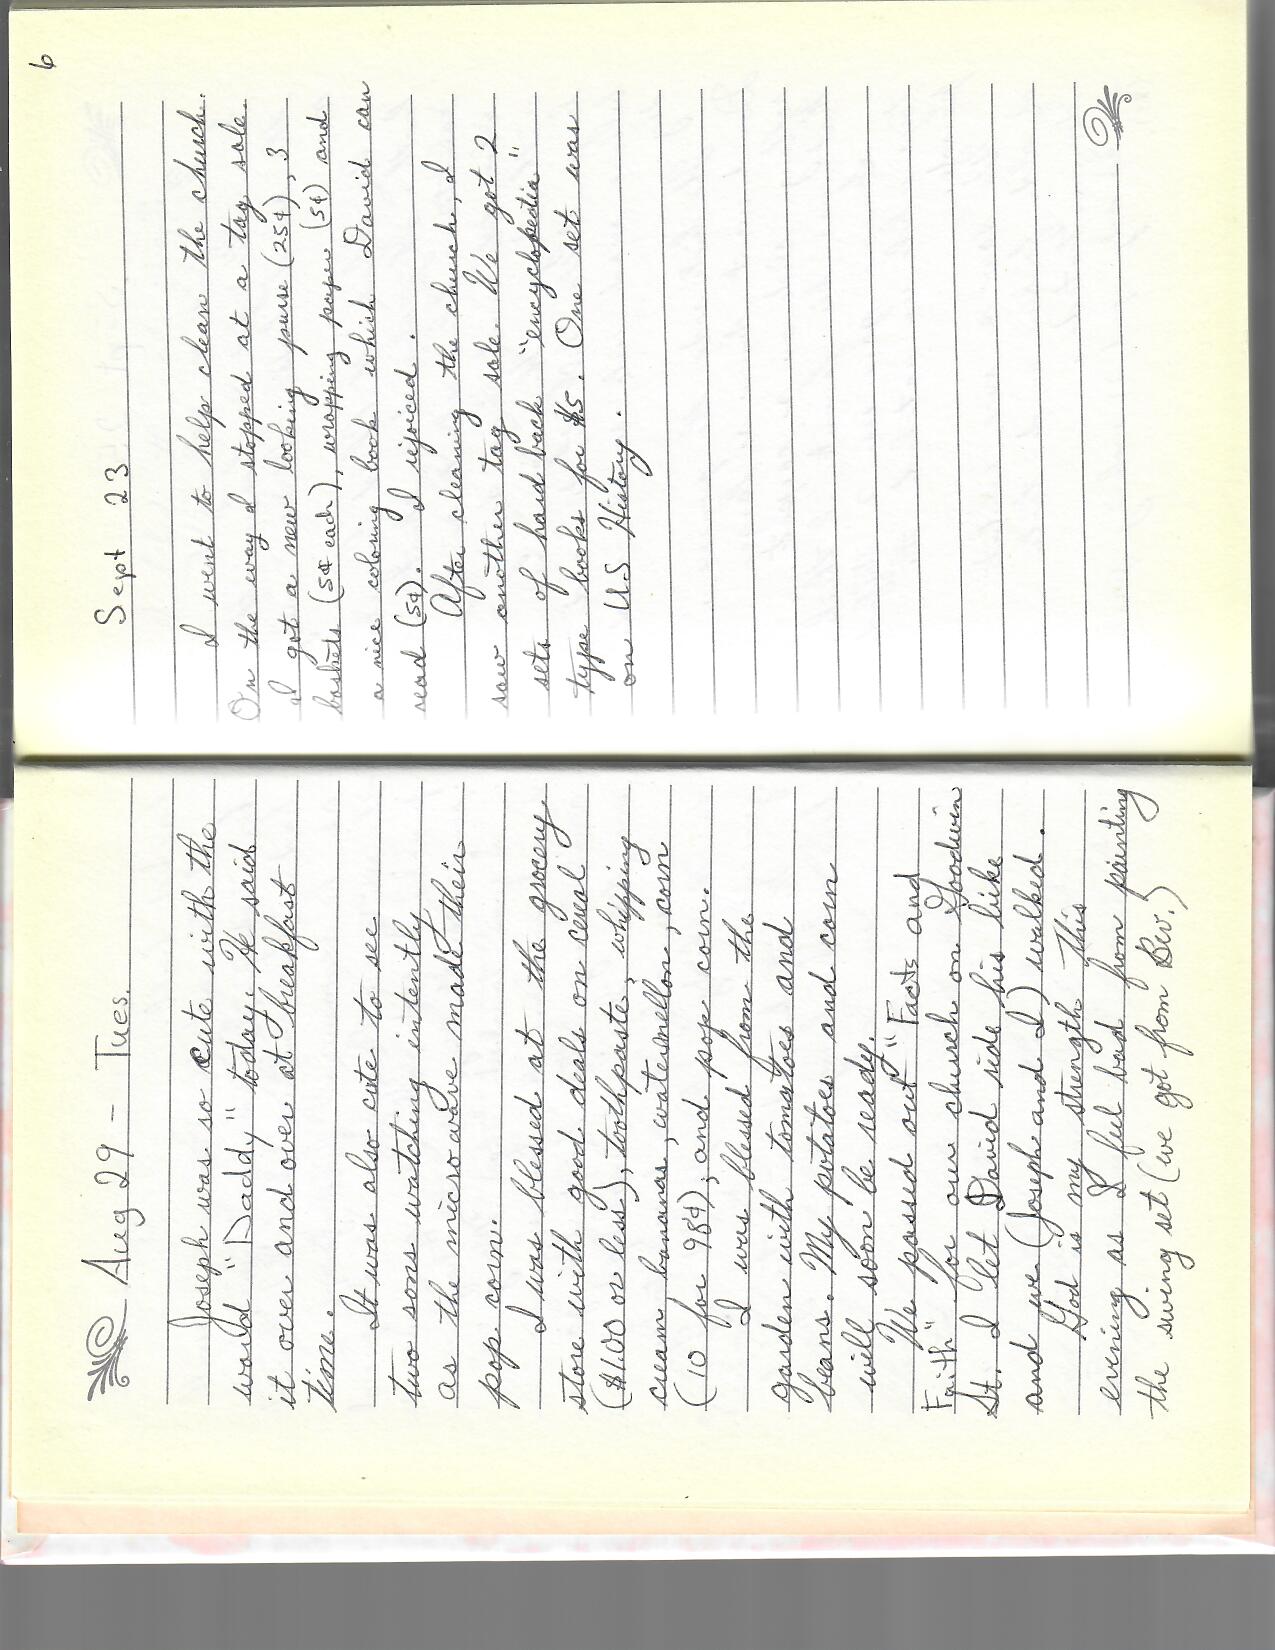 Aug 29 - Tues.
Joseph was so cute with the
word "Daddy" today. He said
it over and over at breakfast
time.
It was also cute to see
two sons watching intently
as the microwave made their
pop corn.
I was blessed at the grocery
store with good deals on cereal
($1.00 or less), toothpaste, whipping
cream, bananas, watermellon, corn
(10 for 98¢); and pop corn.
I was blessed from the
garden with tomatoes and
beans. My potatoes and corn
will soon be ready.
We passed out "Facts and
Faith" for our church on Goodwin
St. I let David ride his bike
and we (Joseph and I) walked.
God is my strength. This
evening as I feel bad from painting
the swing set (we got from Bev.)
6
Sept 23
I went to help clean the church.
On the way I stopped at a tag sale.
I got a new looking purse (25¢), 3
baskets (5¢ each), wrapping paper (5¢) and
a nice coloring book which David can
read (5¢). I rejoiced.
After cleaning the church, I
saw another tag sale. We got 2
sets of hard back "encyclopedia"
type books for $5. One set was
on U.S History.